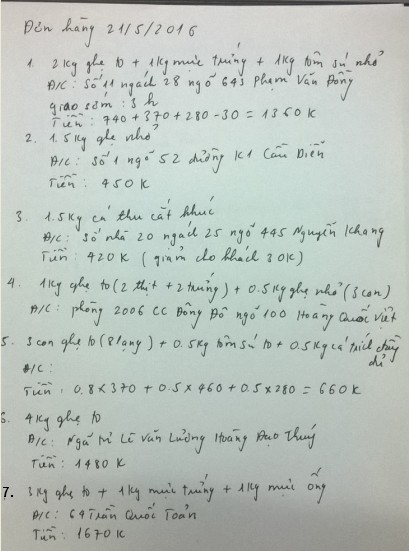 Đơn hàng 21/5/2016
1. 2kg ghẹ to + 1kg mực trứng + 1kg tôm sú nhỏ
Đ/C: Số 11 ngách 28 ngõ 643 Phạm Văn Đồng
giao sớm: 3h
Tiền: 740 + 370 + 280 - 30 = 1360K
2. 1.5kg ghẹ nhỏ
Đ/C: Số 1 ngõ 52 đường K1 Cầu Diễn
Tiền: 450K
3. 1.5kg cá thu cắt khúc
Đ/C: Số nhà 20 ngách 25 ngõ 445 Nguyễn Khang
Tiền: 420K (giảm cho khách 30K)
4. 1kg ghẹ to (2 thịt + 2 trứng) + 0.5kg ghẹ nhỏ (3con)
Đ/C: phòng 2006 CC Đông Đô ngõ 100 Hoàng Quốc Việt
5. 3 con ghẹ to (8 lạng) + 0.5kg tôm sú to + 0.5kg cá trích
Đ/C:
Tiền: 0.8 x 370 + 0.5 x 460 + 0.5 x 280 = 660K
6. 4kg ghẹ to
Đ/C: Ngã tư Lê Văn Lương Hoàng Đạo Thúy
Tiền: 1480K
7. 3kg ghẹ to + 1kg mực trứng + 1kg mực ống
Đ/C: 64 Trần Quốc Toản
Tiền: 1670K